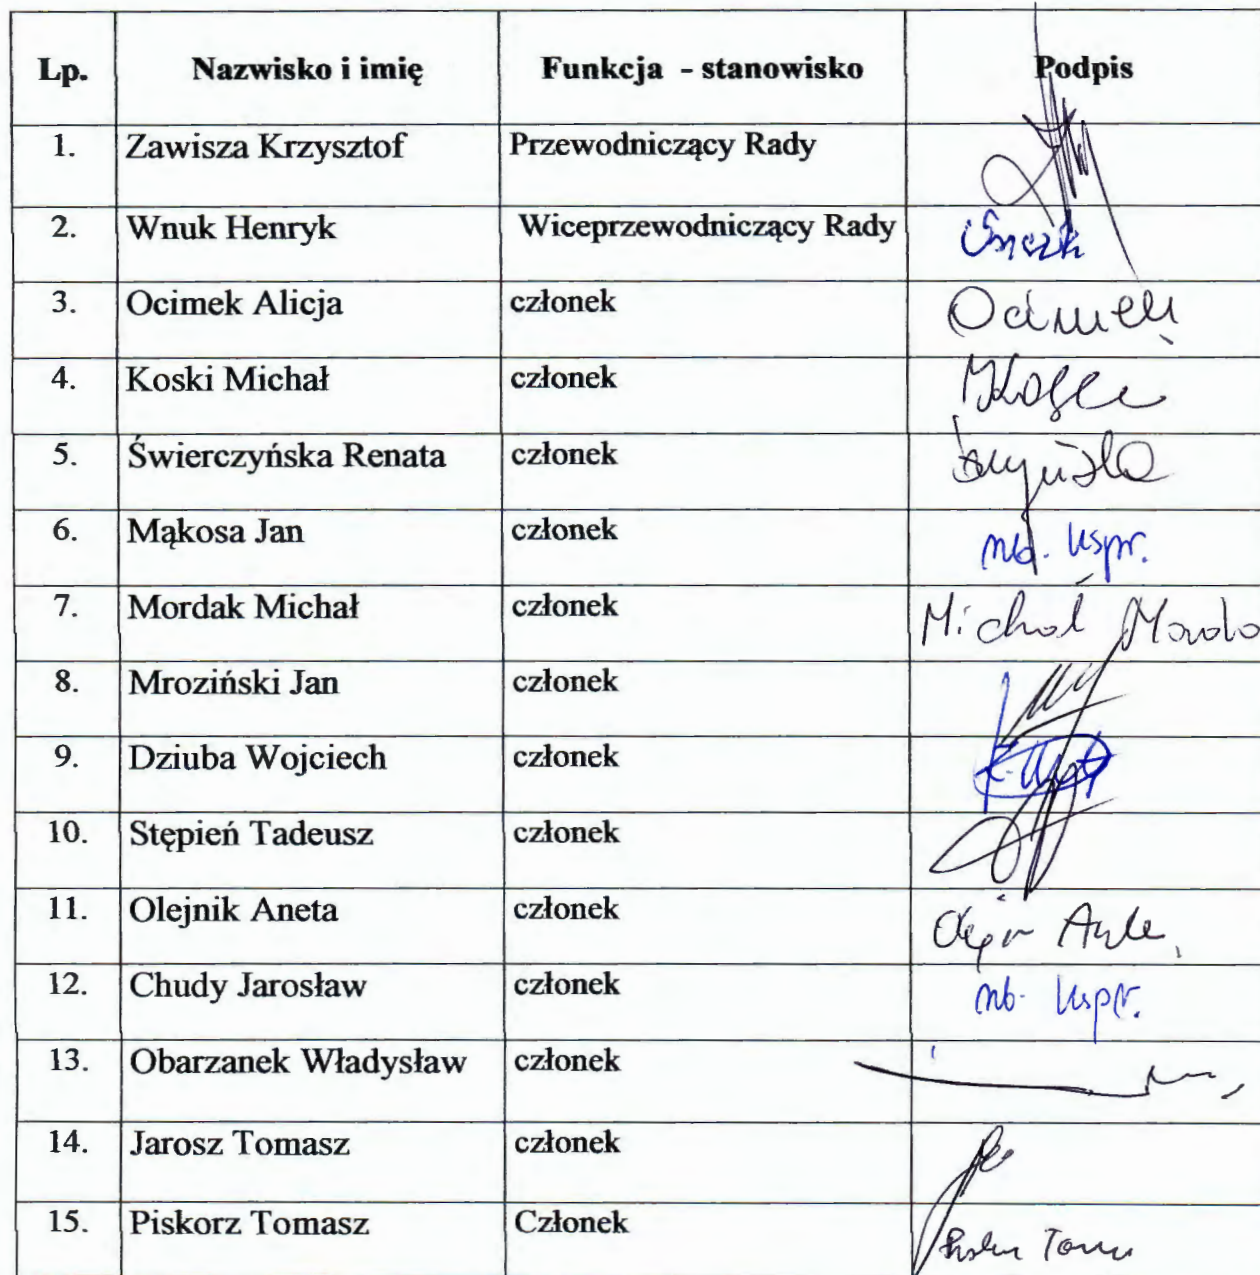 Lp. Nazwisko i imię Funkcja - stanowisko Podpis
1. Zawisza Krzysztof Przewodniczący Rady
2. Wnuk Henryk Wiceprzewodniczący Rady
3. Ocimek Alicja członek Ocimek
4. Koski Michał członek
5. Świerczyńska Renata członek
6. Mąkosa Jan członek nb. uspr.
7. Mordak Michał członek Michał
8. Mroziński Jan członek
9. Dziuba Wojciech członek
10. Stępień Tadeusz członek
11. Olejnik Aneta członek
12. Chudy Jarosław członek nb. uspr.
13. Obarzanek Władysław członek
14. Jarosz Tomasz członek
15. Piskorz Tomasz Członek